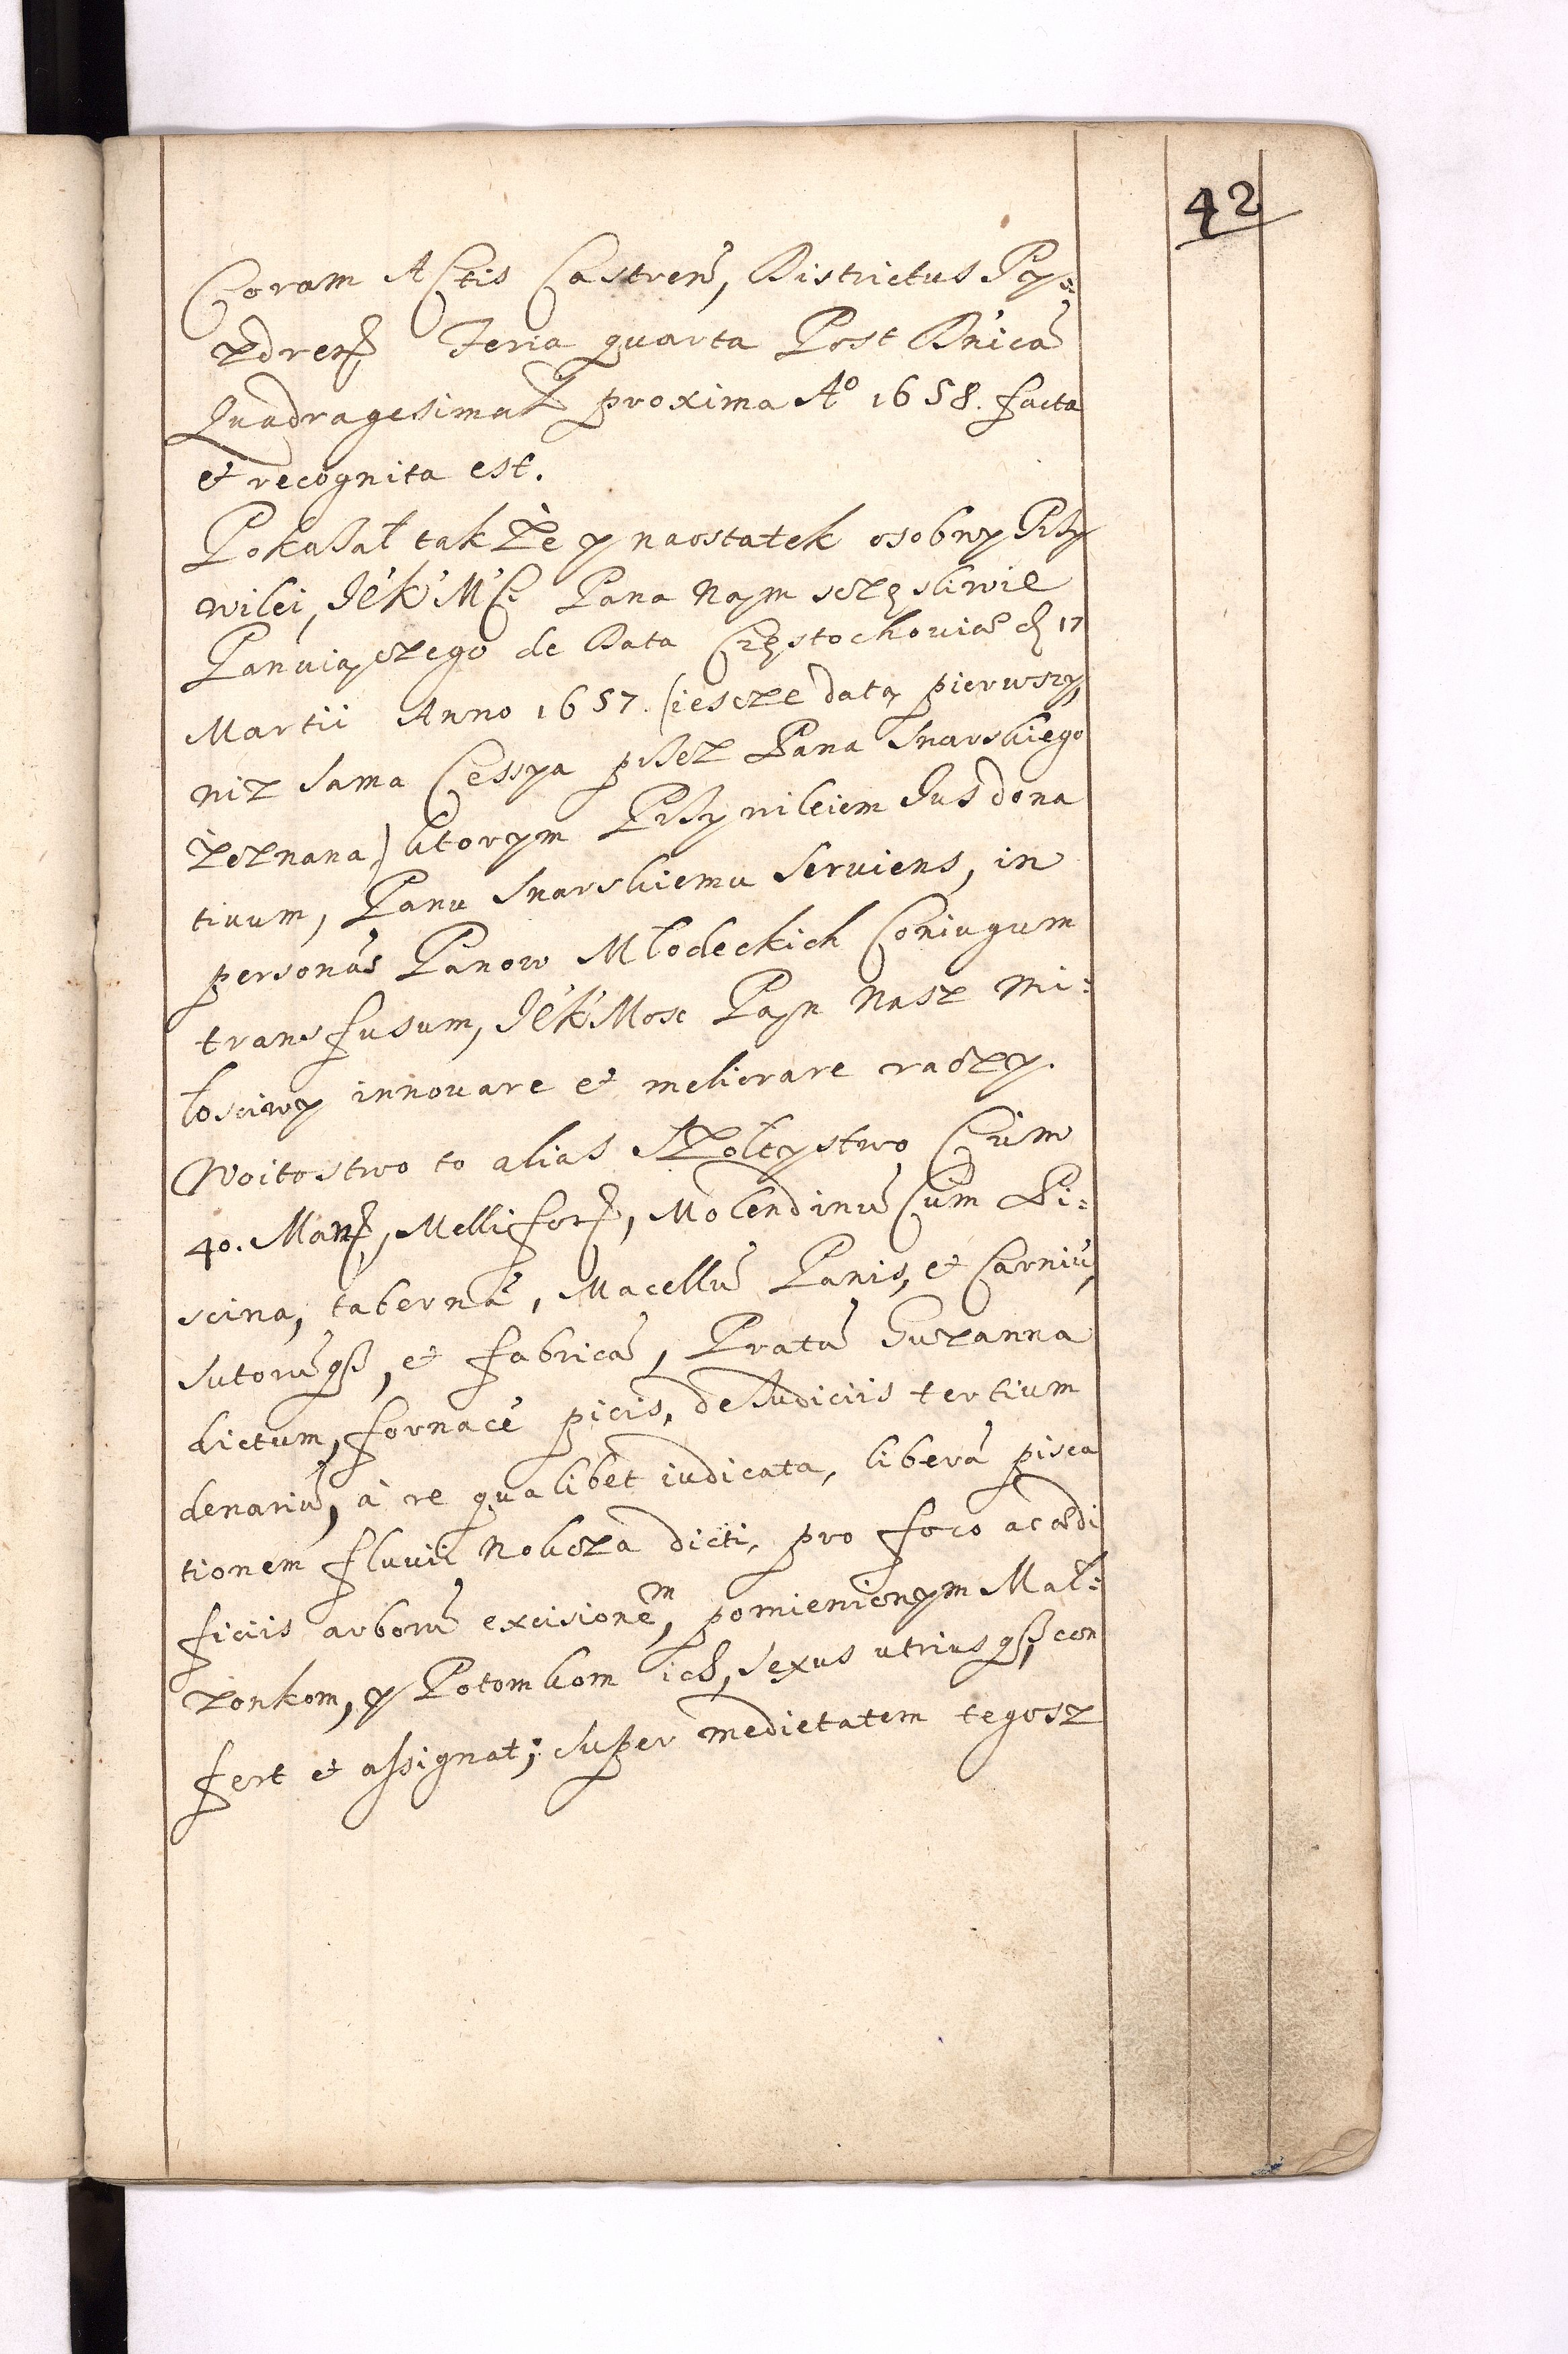 42
Coram Actis Castren̄, Districtus Py=
zdren̄ Feria quarta Post Dn̄icā
Quadragesimalē proxima Aº 1658. facta
et recognita est.
Pokasał takze y naostatek osobny Prsy
wilei, JeK'MCi Pana Naym sczęsliwie
Panuiączego de Data Częstochoviae d 17
Martii Anno 1657. (iescze datą pierwszy,
niz sama Cessya prsez Pana Snarskiego
zeznana) ktorym Prsywileiem Jus dona
tiuum, Panu Snarskiemu seruiens, in
personas Panow Młodeckich Coniugum
transfusum, JeK'Mosc Pan Nasz Mi=
łosciwy innouare et meliorare raczy.
Woitostwo to alias Szołtystwo Cum
40. Mans, Mellifors, Molendinū Cum Pi=
scina, tabernā, Macellū Panis, et Carniū,
sutorūqз, et fabricā, Pratū Guzanna
dictum, fornacē picis, de Judiciis tertium
denariū, à re qualibet iudicata, liberā pisca
tionem fluvii Nobcza dicti, pro foco ac ædi
ficiis arborū excisionem, pomienionym Mał=
zonkom, y Potomkom ich, sexus utriusqз, con
fert et assignat; super medietatem tegosz